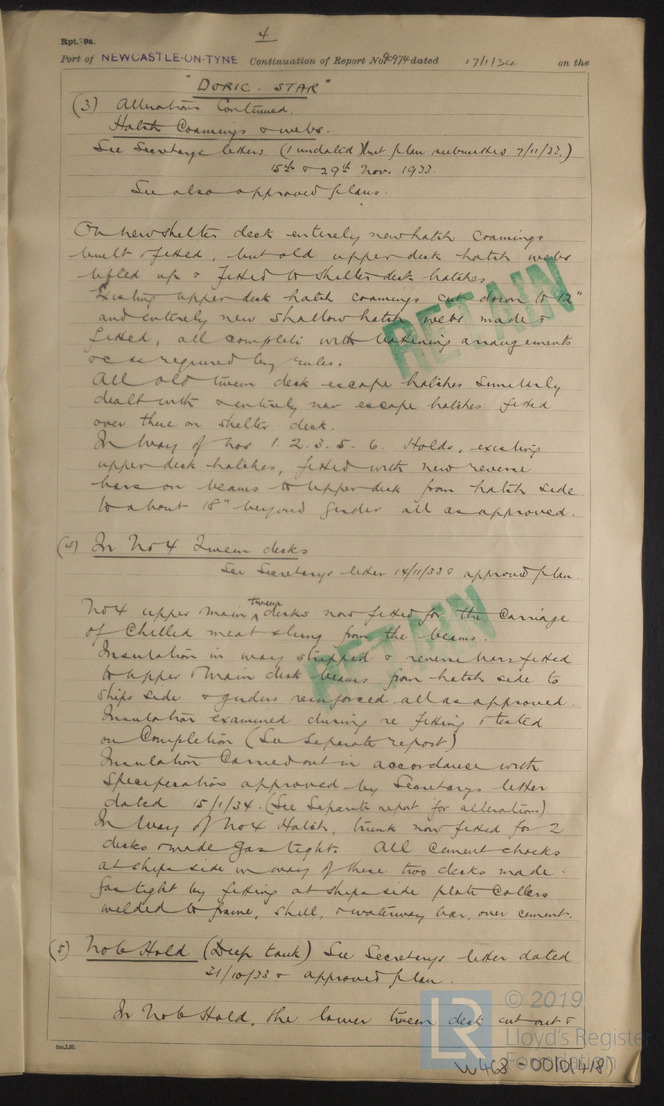 4
Rpt. 9a.
Port of NEWCASTLE-ON-TYNE Continuation of Report No 90974 dated 17/1/34 on the
"DORIC STAR"
(3) Alterations Continued.
Hatch Coamings & webs.
See Secretarys letters (1 undated) (but plan submitted 7/11/33.)
15th & 29th Nov. 1933
See also approved plans.
On new shelter deck entirely new hatch coamings
built & fitted, but old upper deck hatch webs
lifted up & fitted to shelter deck hatches.
Existing upper deck hatch coamings cut down to 12"
and entirely new shallow hatch webs made &
fitted, all complete with battening arrangements
&c as required by rules.
All old tween deck escape hatches similarly
dealt with & entirely new escape hatches fitted
over these on shelter deck.
In way of Nos 1. 2. 3. 5. 6. Holds, existing
upper deck hatches, fitted with new reverse
bars on beams to upper deck from hatch side
to about 18" beyond girder all as approved.
(4) In No 4 Tween decks
See Secretarys letter 14/11/33 & approved plan.
No 4 upper & main tween decks now fitted for the carriage
of Chilled meat slung from the beams.
Insulation in way stripped & reverse bars fitted
to upper & main deck beams from hatch side to
ships side & girders reinforced all as approved.
Insulation examined during re fitting & tested
on Completion (See Separate report)
Insulation Carried out in accordance with
Specification approved by Secretarys letter
dated 15/1/34. (See Separate report for alterations)
In way of No 4 Hatch, trunk now fitted for 2
decks & made gas tight. All cement chocks
at ships side in way of these two decks made
gas tight by fitting at ships side plate collars
welded to frame, shell, & waterway bar, over cement.
(5) No 6 Hold (Deep tank) See Secretarys letter dated
31/10/33 & approved plan.
In No 6 Hold, the lower tween deck cut out &
RETAIN
RETAIN
© 2019
LR
Lloyd's Register
Foundation
W468-0010(4/8)